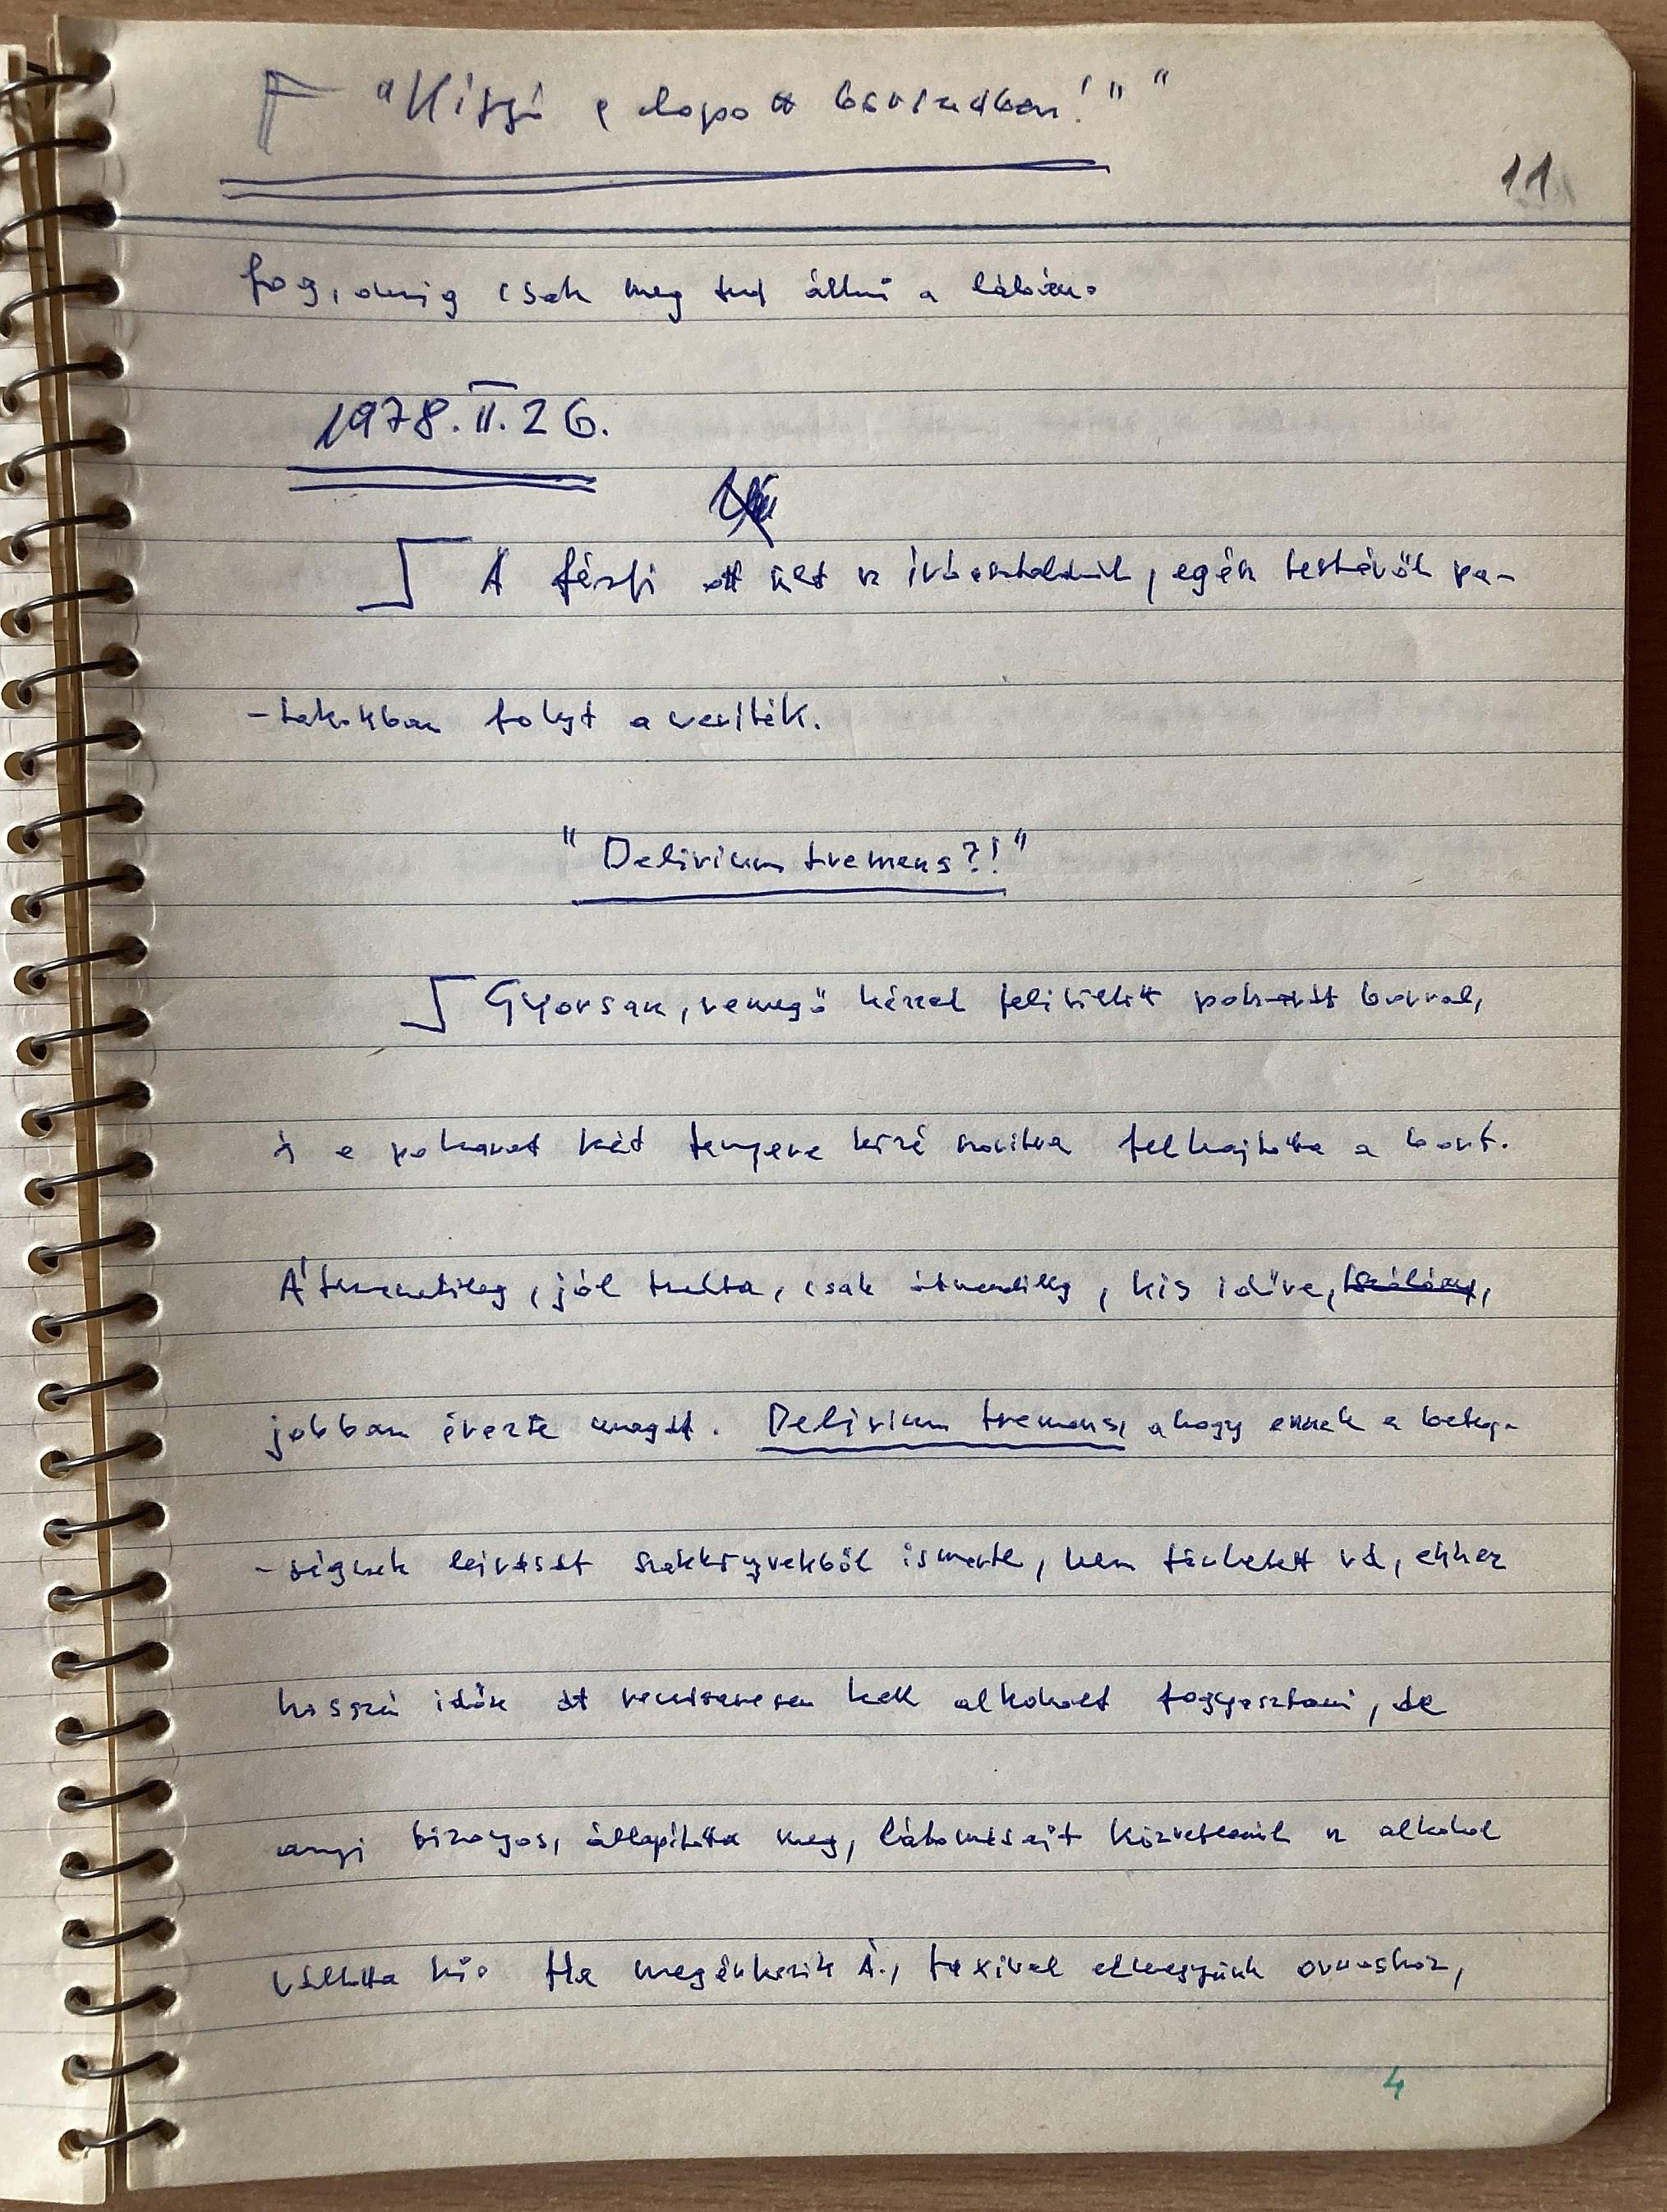 "Kígyó a lopott bőröndben!" "
11
fog, amíg csak meg tud állni a lábán.
1978. II. 26.
A férfi ott ült az íróasztalánál, egész testéről pa-
-takokban folyt a veríték.
"Delirium tremens?!"
Gyorsan, remegő kézzel teletöltött poharát borral,
és a poharat két tenyere közé szorítva felhajtotta a bort.
Átmenetileg, jól tudta, csak átmenetileg, kis időre,
jobban érezte magát. Delirium tremens, ahogy ennek a beteg-
-ségnek leírását szakkönyvekből ismerte, nem törhetett rá, ehhez
hosszú időn át rendszeresen kell alkoholt fogyasztani, de
annyi bizonyos, állapította meg, látomásait közvetlenül az alkohol
váltotta ki. Ha megérkezik Á., taxival elmegyünk orvoshoz,
4